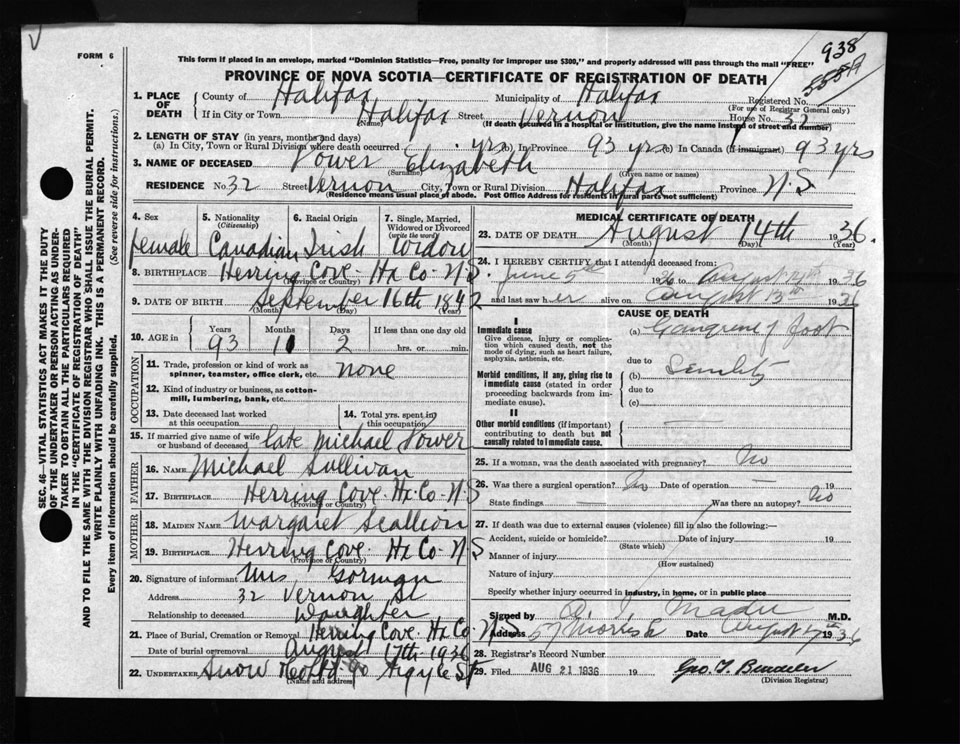 V
FORM 6
938
This form if placed in an envelope, marked "Dominion Statistics—Free, penalty for improper use $300," and properly addressed will pass through the mail "FREE"
PROVINCE OF NOVA SCOTIA—CERTIFICATE OF REGISTRATION OF DEATH
SEC. 46—VITAL STATISTICS ACT MAKES IT THE DUTY
OF THE UNDERTAKER OR PERSON ACTING AS UNDER-
TAKER TO OBTAIN ALL THE PARTICULARS REQUIRED
IN THE "CERTIFICATE OF REGISTRATION OF DEATH"
AND TO FILE THE SAME WITH THE DIVISION REGISTRAR WHO SHALL ISSUE THE BURIAL PERMIT.
WRITE PLAINLY WITH UNFADING INK. THIS IS A PERMANENT RECORD.
Every item of information should be carefully supplied. (See reverse side for instructions.)
1. PLACE OF DEATH
County of Halifax Municipality of Halifax Registered No.
(For use of Registrar General only)
If in City or Town Halifax Street Vernon House No. 32
(Name) (If death occurred in a hospital or institution, give the name instead of street and number)
2. LENGTH OF STAY (in years, months and days)
(a) In City, Town or Rural Division where death occurred yrs (b) In Province 93 yrs (c) In Canada (If immigrant) 93 yrs
3. NAME OF DECEASED Power Elizabeth
(Surname) (Given name or names)
RESIDENCE No. 32 Street Vernon City, Town or Rural Division Halifax Province N.S
(Residence means usual place of abode. Post Office Address for residents in rural parts not sufficient)
4. Sex 5. Nationality (Citizenship) 6. Racial Origin 7. Single, Married, Widowed or Divorced (write the word)
female Canadian Irish Widow
8. BIRTHPLACE Herring Cove Hx Co N.S.
(Province or Country)
9. DATE OF BIRTH September 16th 1842
(Month) (Day) (Year)
10. AGE in Years Months Days If less than one day old
93 11 2 hrs. or min.
OCCUPATION
11. Trade, profession or kind of work as spinner, teamster, office clerk, etc. none
12. Kind of industry or business, as cotton-mill, lumbering, bank, etc.
13. Date deceased last worked at this occupation
14. Total yrs. spent in this occupation
15. If married give name of wife or husband of deceased late Michael Power
FATHER
16. NAME Michael Sullivan
17. BIRTHPLACE Herring Cove. Hx. Co. N.S
(Province or Country)
MOTHER
18. MAIDEN NAME Margaret Scallion
19. BIRTHPLACE Herring Cove. Hx Co - N S
(Province or Country)
20. Signature of informant Mrs. Gorman
Address 32 Vernon St
Relationship to deceased Daughter
21. Place of Burial, Cremation or Removal Herring Cove. Hx Co. N.S
Date of burial or removal August 17th 1936
22. UNDERTAKER Snow Argyle St
(Name and address)
MEDICAL CERTIFICATE OF DEATH
23. DATE OF DEATH August 14th 1936.
(Month) (Day) (Year)
24. I HEREBY CERTIFY that I attended deceased from:
June 5th 1936 to August 14th 1936
and last saw her alive on August 13th 1936
CAUSE OF DEATH
I
Immediate cause
Give disease, injury or complication which caused death, not the mode of dying, such as heart failure, asphyxia, asthenia, etc.
(a) Gangrene of foot
due to
Morbid conditions, if any, giving rise to immediate cause (stated in order proceeding backwards from immediate cause).
(b) Senility
due to
(c)
II
Other morbid conditions (if important) contributing to death but not causally related to immediate cause.
25. If a woman, was the death associated with pregnancy? No
26. Was there a surgical operation? No Date of operation — 19
State findings — Was there an autopsy? No
27. If death was due to external causes (violence) fill in also the following:—
Accident, suicide or homicide? Date of injury 19
(State which)
Manner of injury
(How sustained)
Nature of injury
Specify whether injury occurred in industry, in home, or in public place
Signed by M.D.
Address 57 Morris St Date August 17th 1936
28. Registrar's Record Number
29. Filed AUG 21 1936 19
(Division Registrar)